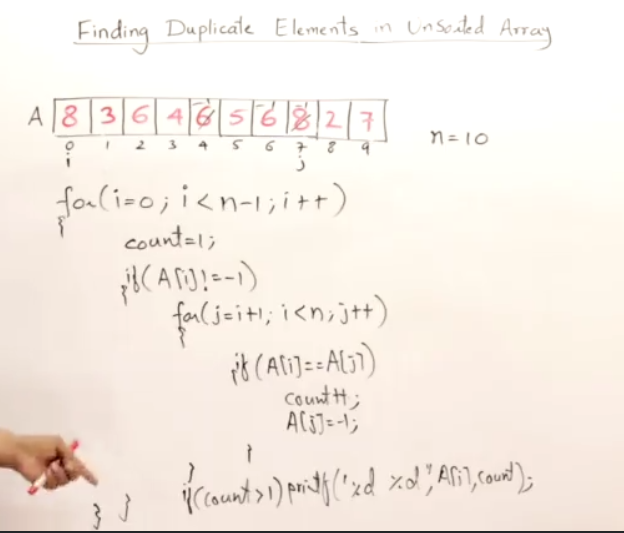 Finding Duplicate Elements in Unsorted Array
A 8 3 6 4 6 5 6 8 2 7
0 1 2 3 4 5 6 7 8 9
n=10
i j
for(i=0; i<n-1; i++)
{
count=1;
if(A[i]!=-1)
{
for(j=i+1; i<n; j++)
{
if(A[i]==A[j])
{
count++;
A[j]=-1;
}
}
if(count>1) printf("%d %d", A[i], count);
} }